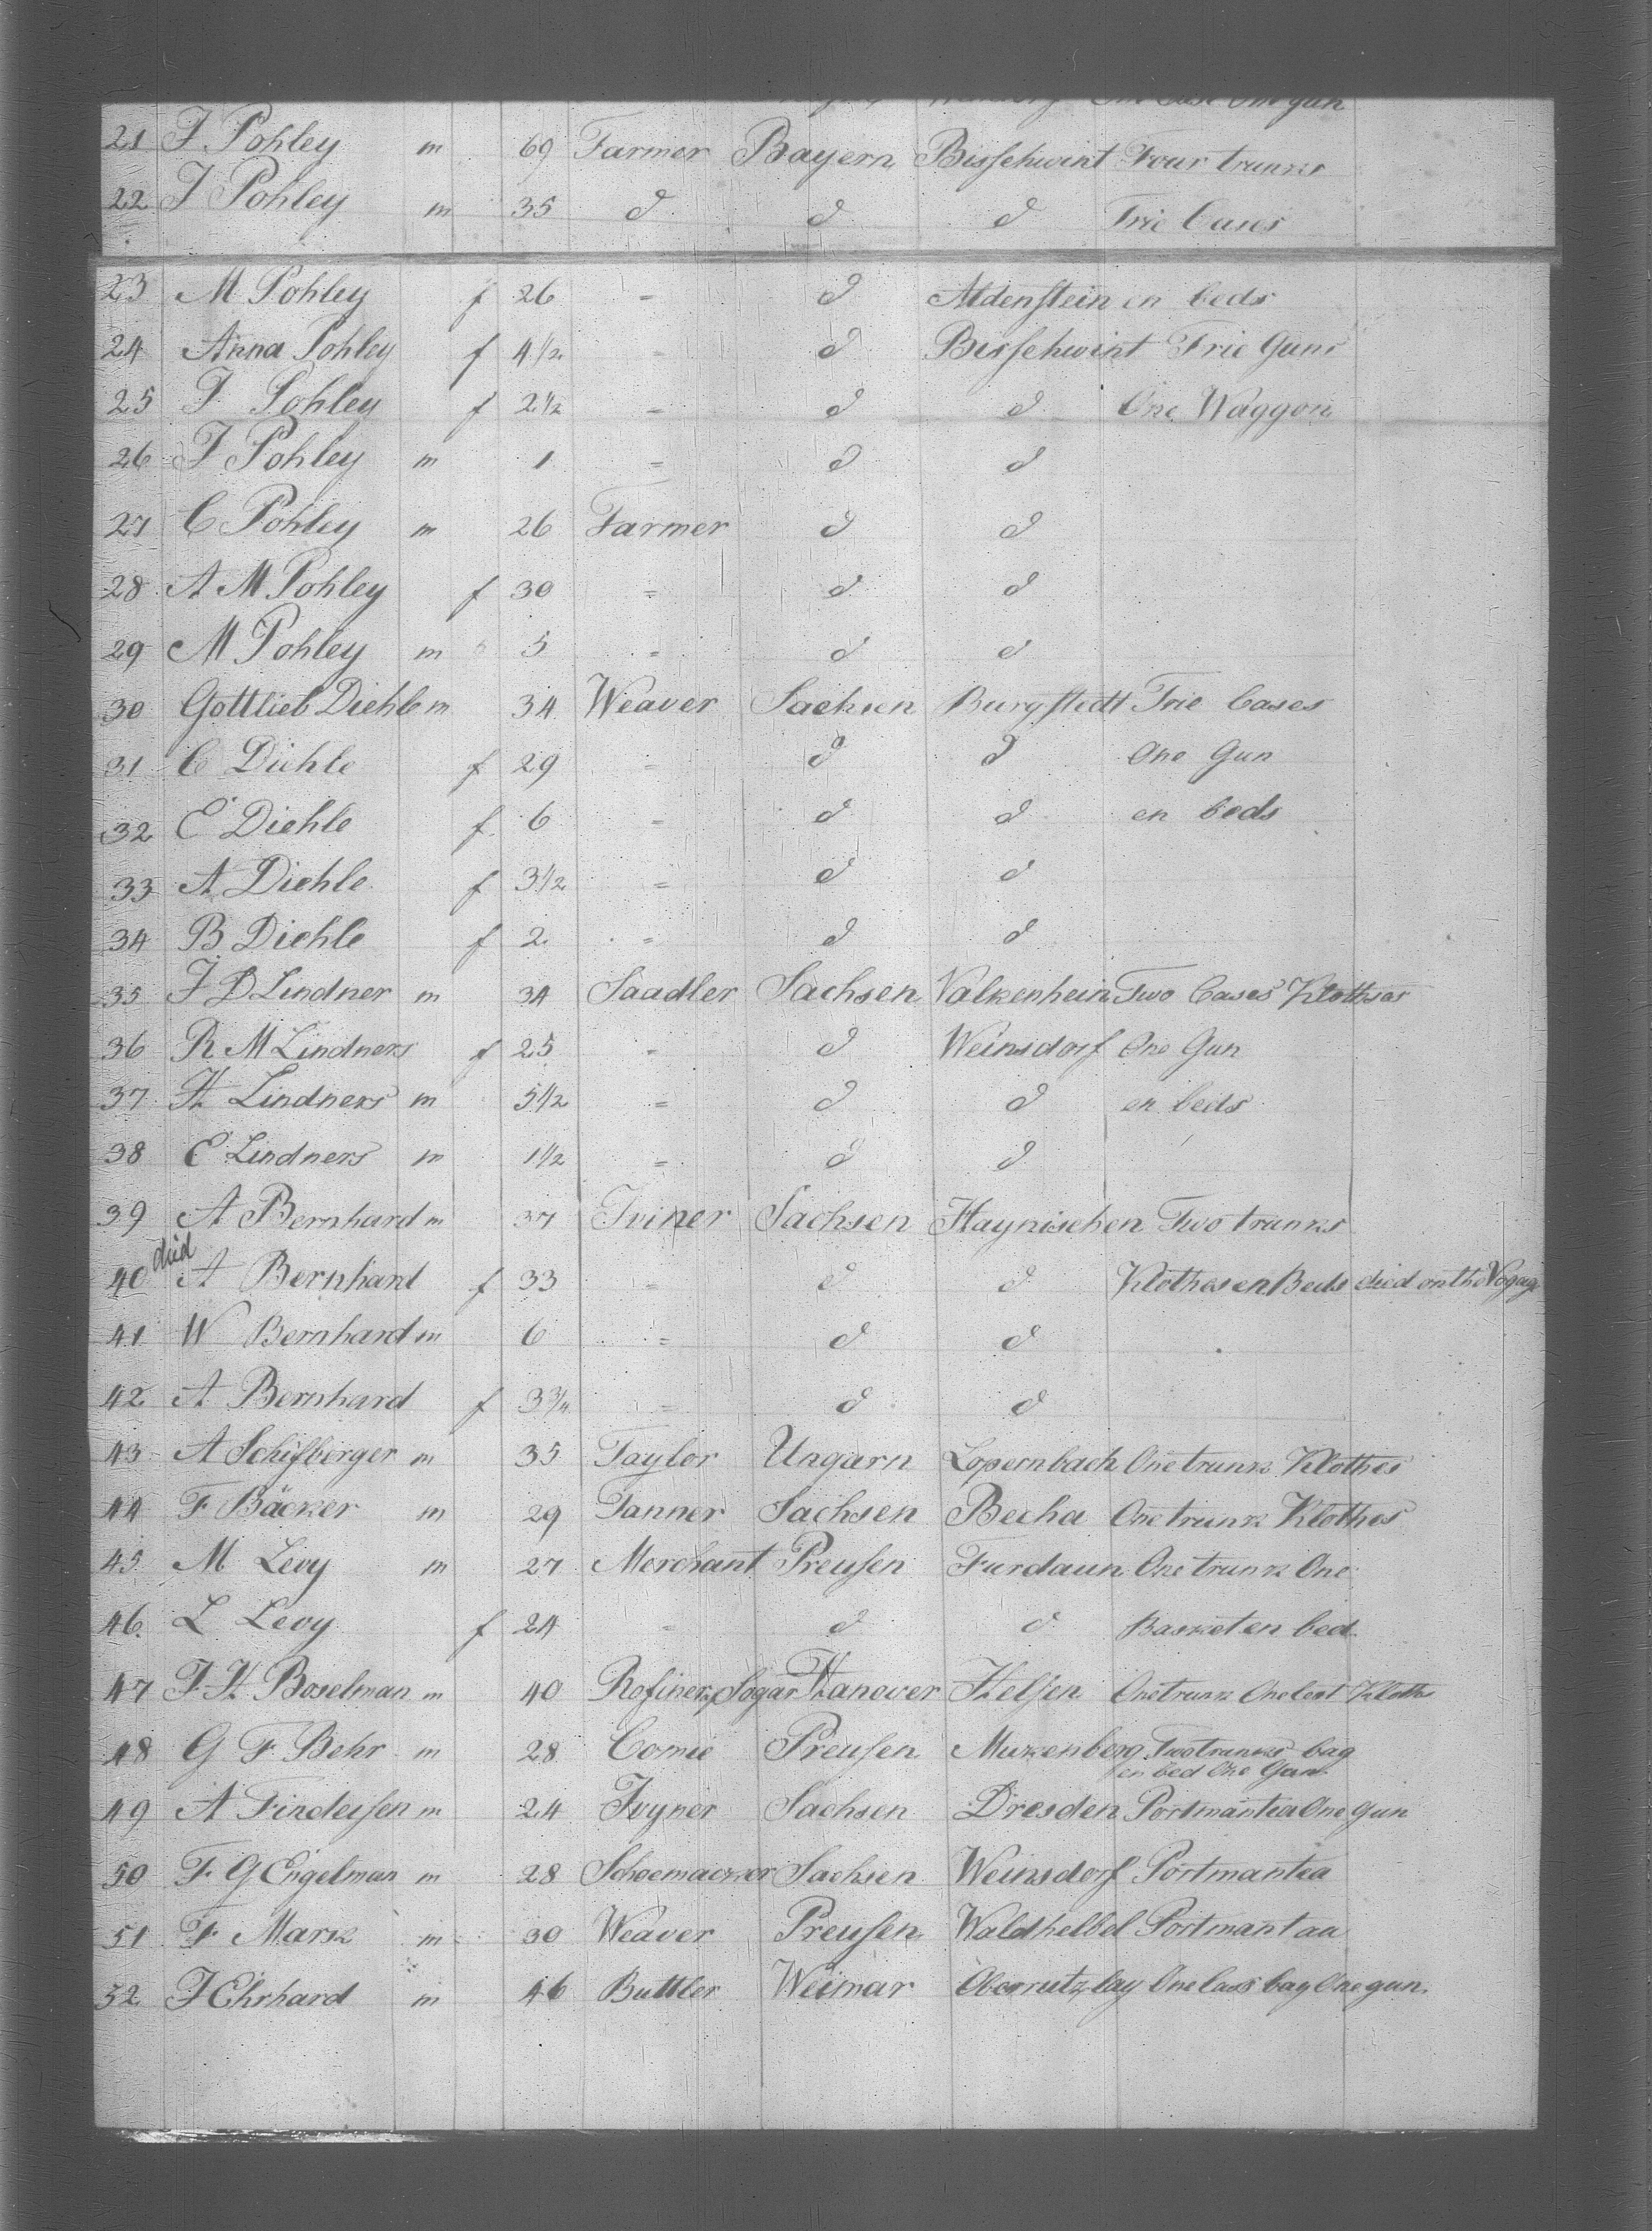 One gun
21 J Pohley m 69 Farmer Bayern Bisschwint Four trunks
22 J Pohley m 35 d d d Trie Cases
23 M Pohley f 26 = d Aldenstein en beds
24 Anna Pohley f 4 1/2 = d Bisschwint Trie Guns
25 J Pohley f 2 1/2 = d d One Waggon
26 J Pohley m 1 = d d
27 C Pohley m 26 Farmer d d
28 A M Pohley f 30 = d d
29 M Pohley m 5 = d d
30 Gottlieb Diehle m 34 Weaver Sachsen Burgstedt Trie Cases
31 C Diehle f 29 = d d One Gun
32 E Diehle f 6 = d d en beds
33 A Diehle f 3 1/2 = d d
34 B Diehle f 2 = d d
35 J D Lindner m 34 Saadler Sachsen Valkenhein Two Cases Klothses
36 R M Lindners f 25 = d Weinsdorf One Gun
37 H Lindners m 5 1/2 = d d en beds
38 E Lindners m 1 1/2 = d d
39 A Bernhard m 37 Iviner Sachsen Haynischen Two trunks
died
40 A Bernhard f 33 = d d Klothes en Beds died on the Voyage
41 W Bernhard m 6 = d d
42 A Bernhard f 3 3/4 = d d
43 A Schifberger m 35 Taylor Ungarn Lopernbach One trunk Klothes
44 F Bäcker m 29 Tanner Sachsen Becha One trunk Klothes
45 M Levy m 27 Merchant Preusen Furdaun One trunk One
46 L Levy f 24 = d d Basket en bed
47 F H Boselman m 40 Refiner Sogar Hanover Helsen One trunk One Klothe
48 G F Behr m 28 Comie Preusen Murkenberg Two trunks bag
en bed One Gun
49 A Findeisen m 24 Ivyner Sachsen Dresden Portmantea One gun
50 F G Engelman m 28 Schoemacker Sachsen Weinsdorf Portmantea
51 F Mark m 30 Weaver Preusen Waldhelbel Portmantau
52 J Ehrhard m 46 Buttler Weimar One bag One gun